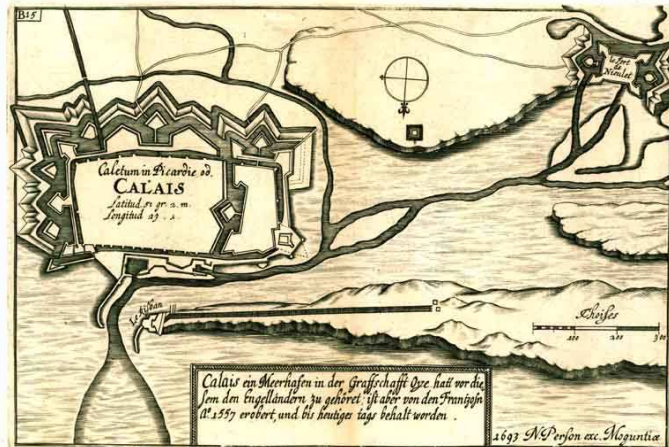 B15
le Fort
de
Nieulet
Caletum in Picardie od.
CALAIS
Latitud. 51 gr. 2. m.
Longitud
Le Risban
Thoises
100 200 300
Calais ein Meerhafen in der Graffschafft Oye hatt vor die,
sem den Engelländern zu gehöret, ist aber von den Frantzosn
Aº. 1557 erobert, und bis heutiges tags behalt worden.
1693 N. Person exc. Moguntiæ